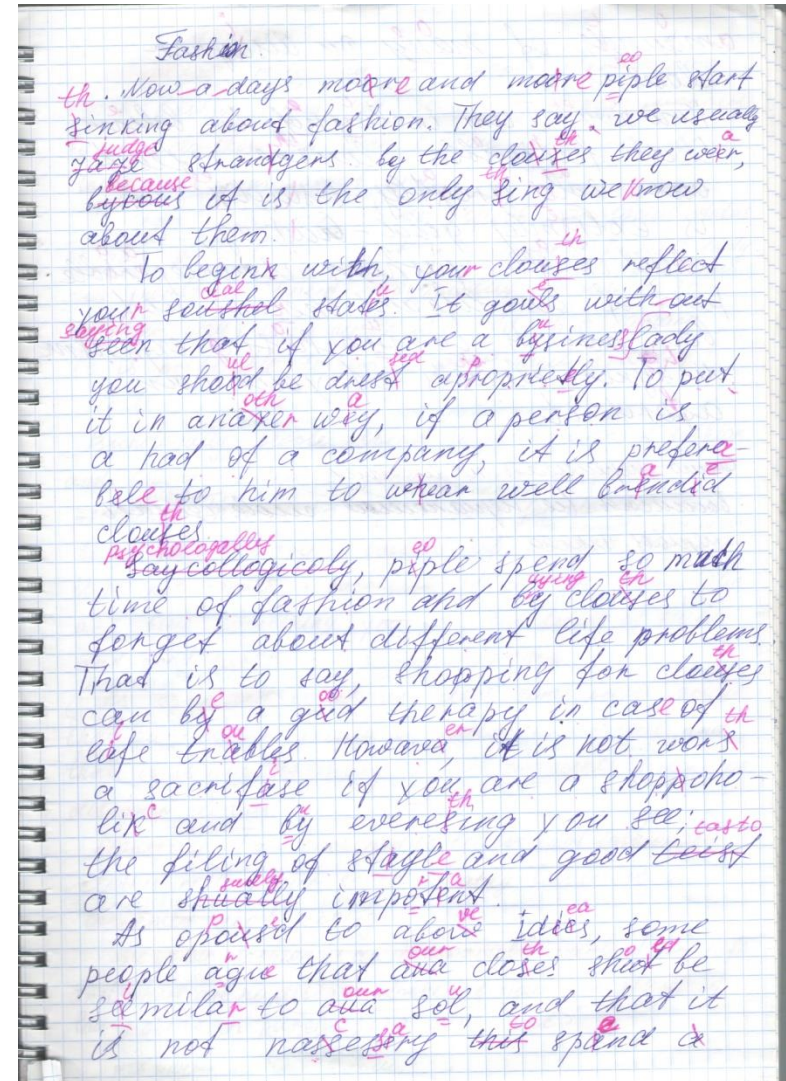 Fashion.
th. Now a days moare and moare piple start
sinking about fashion. They say, we usually
judge
jaje strandgers by the clouses they weer,
because
bycous it is the only sing we know
about them.
To beginn with, your clouses reflect
your soushel states. It gouls without
saying
seen that if you are a bysiness lady
you shood be drest aproprietly. To put
it in anaxer wey, if a person is
a had of a company, it is prefera-
bele to him to whear well brendid
clouses.
psychologally
Saycollogicoly, piple spend so much
time of fashion and by clouses to
forget about different life problems.
That is to say, shopping for clouses
can by a gud therapy in case of
life trables. Howava, it is not wors
a sacrifase if you are a shoppoho-
lik and by everesing you see;
the filing of stagle and good teist
are shually impotent.
As opoused to above idies, some
people agre that aua closes shut be
seemilar to aua sol, and that it
is not nassessery this spend a